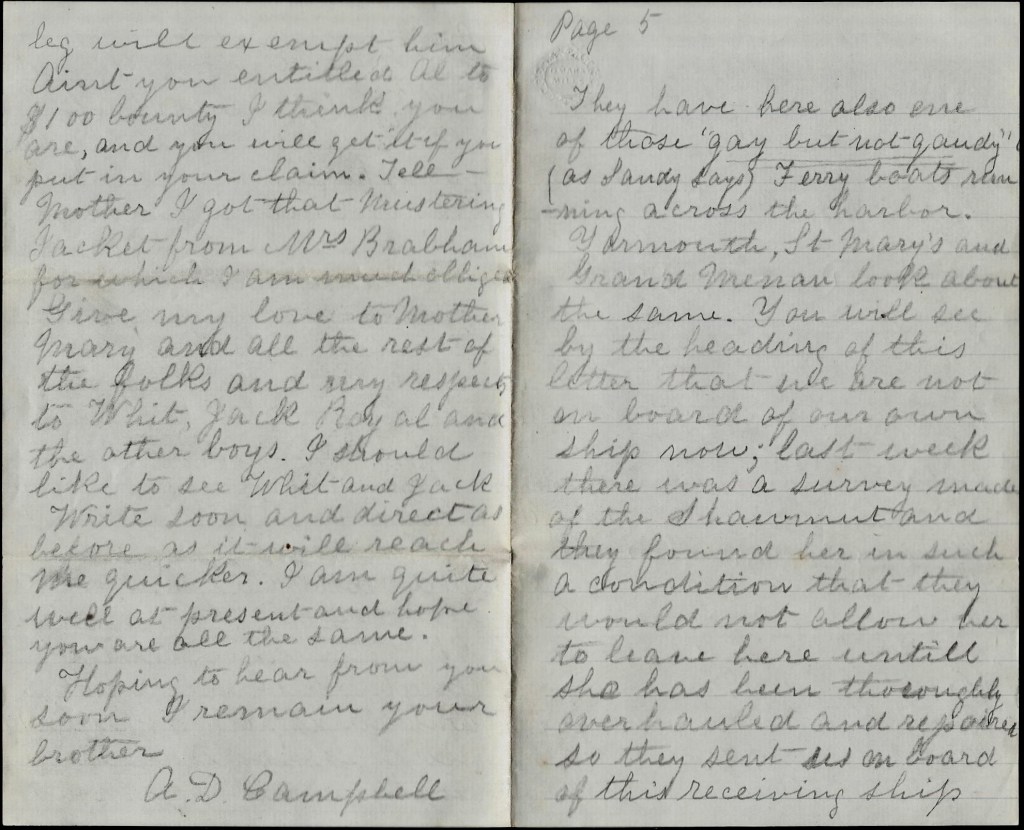 leg will exempt him
Aint you entitled Al to
$100 bounty I think you
are, and you will get it if you
put in your claim. Tell
Mother I got that Mustering
Jacket from Mrs Brabham
for which I am much obliged
Give my love to Mother
Mary and all the rest of
the folks and my respects
to Whit, Jack Royal and
the other boys. I should
like to see Whit and Jack
Write soon and direct as
before as it will reach
me quicker. I am quite
well at present and hope
you are all the same.
Hoping to hear from you
soon I remain your
brother
A. D. Campbell
Page 5
They have here also one
of those "gay but not gaudy"
(as Sandy says) Ferry boats run
-ning across the harbor.
Yarmouth, St Mary's and
Grand Menan look about
the same. You will see
by the heading of this
letter that we are not
on board of our own
ship now; last week
there was a survey made
of the Shawmut and
they found her in such
a condition that they
would not allow her
to leave here untill
she has been thoroughly
overhauled and repaired
so they sent us on board
of this receiving ship